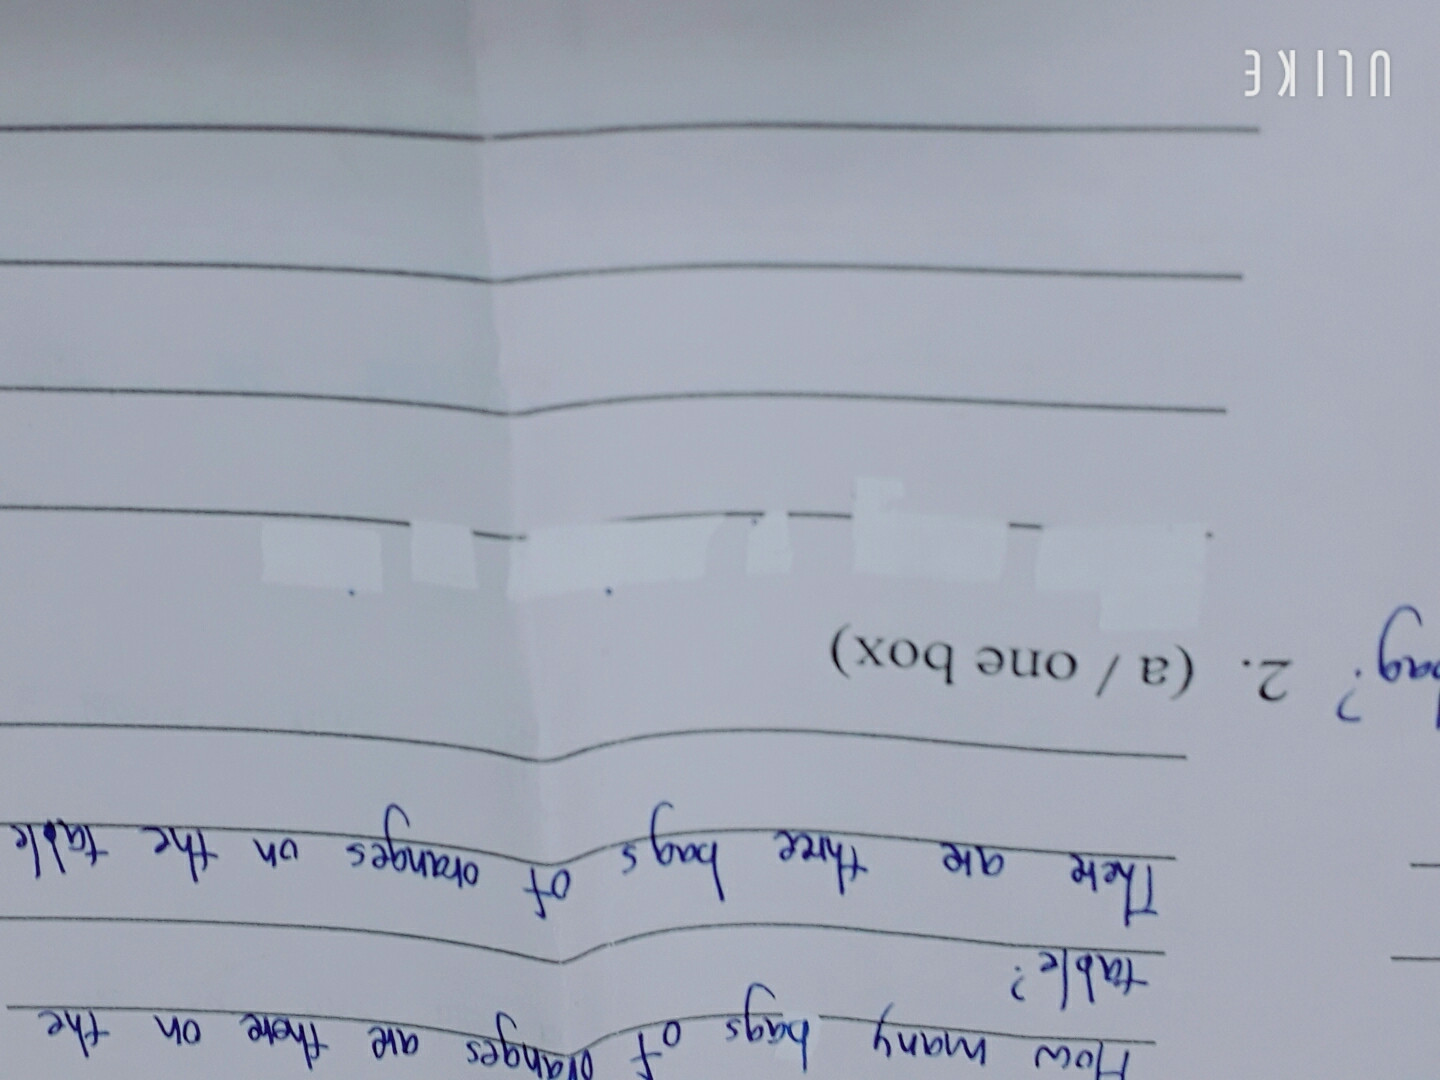 How many bags of oranges are there on the
table?
There are three bags of oranges on the table
bag?
2. (a / one box)
ULIKE